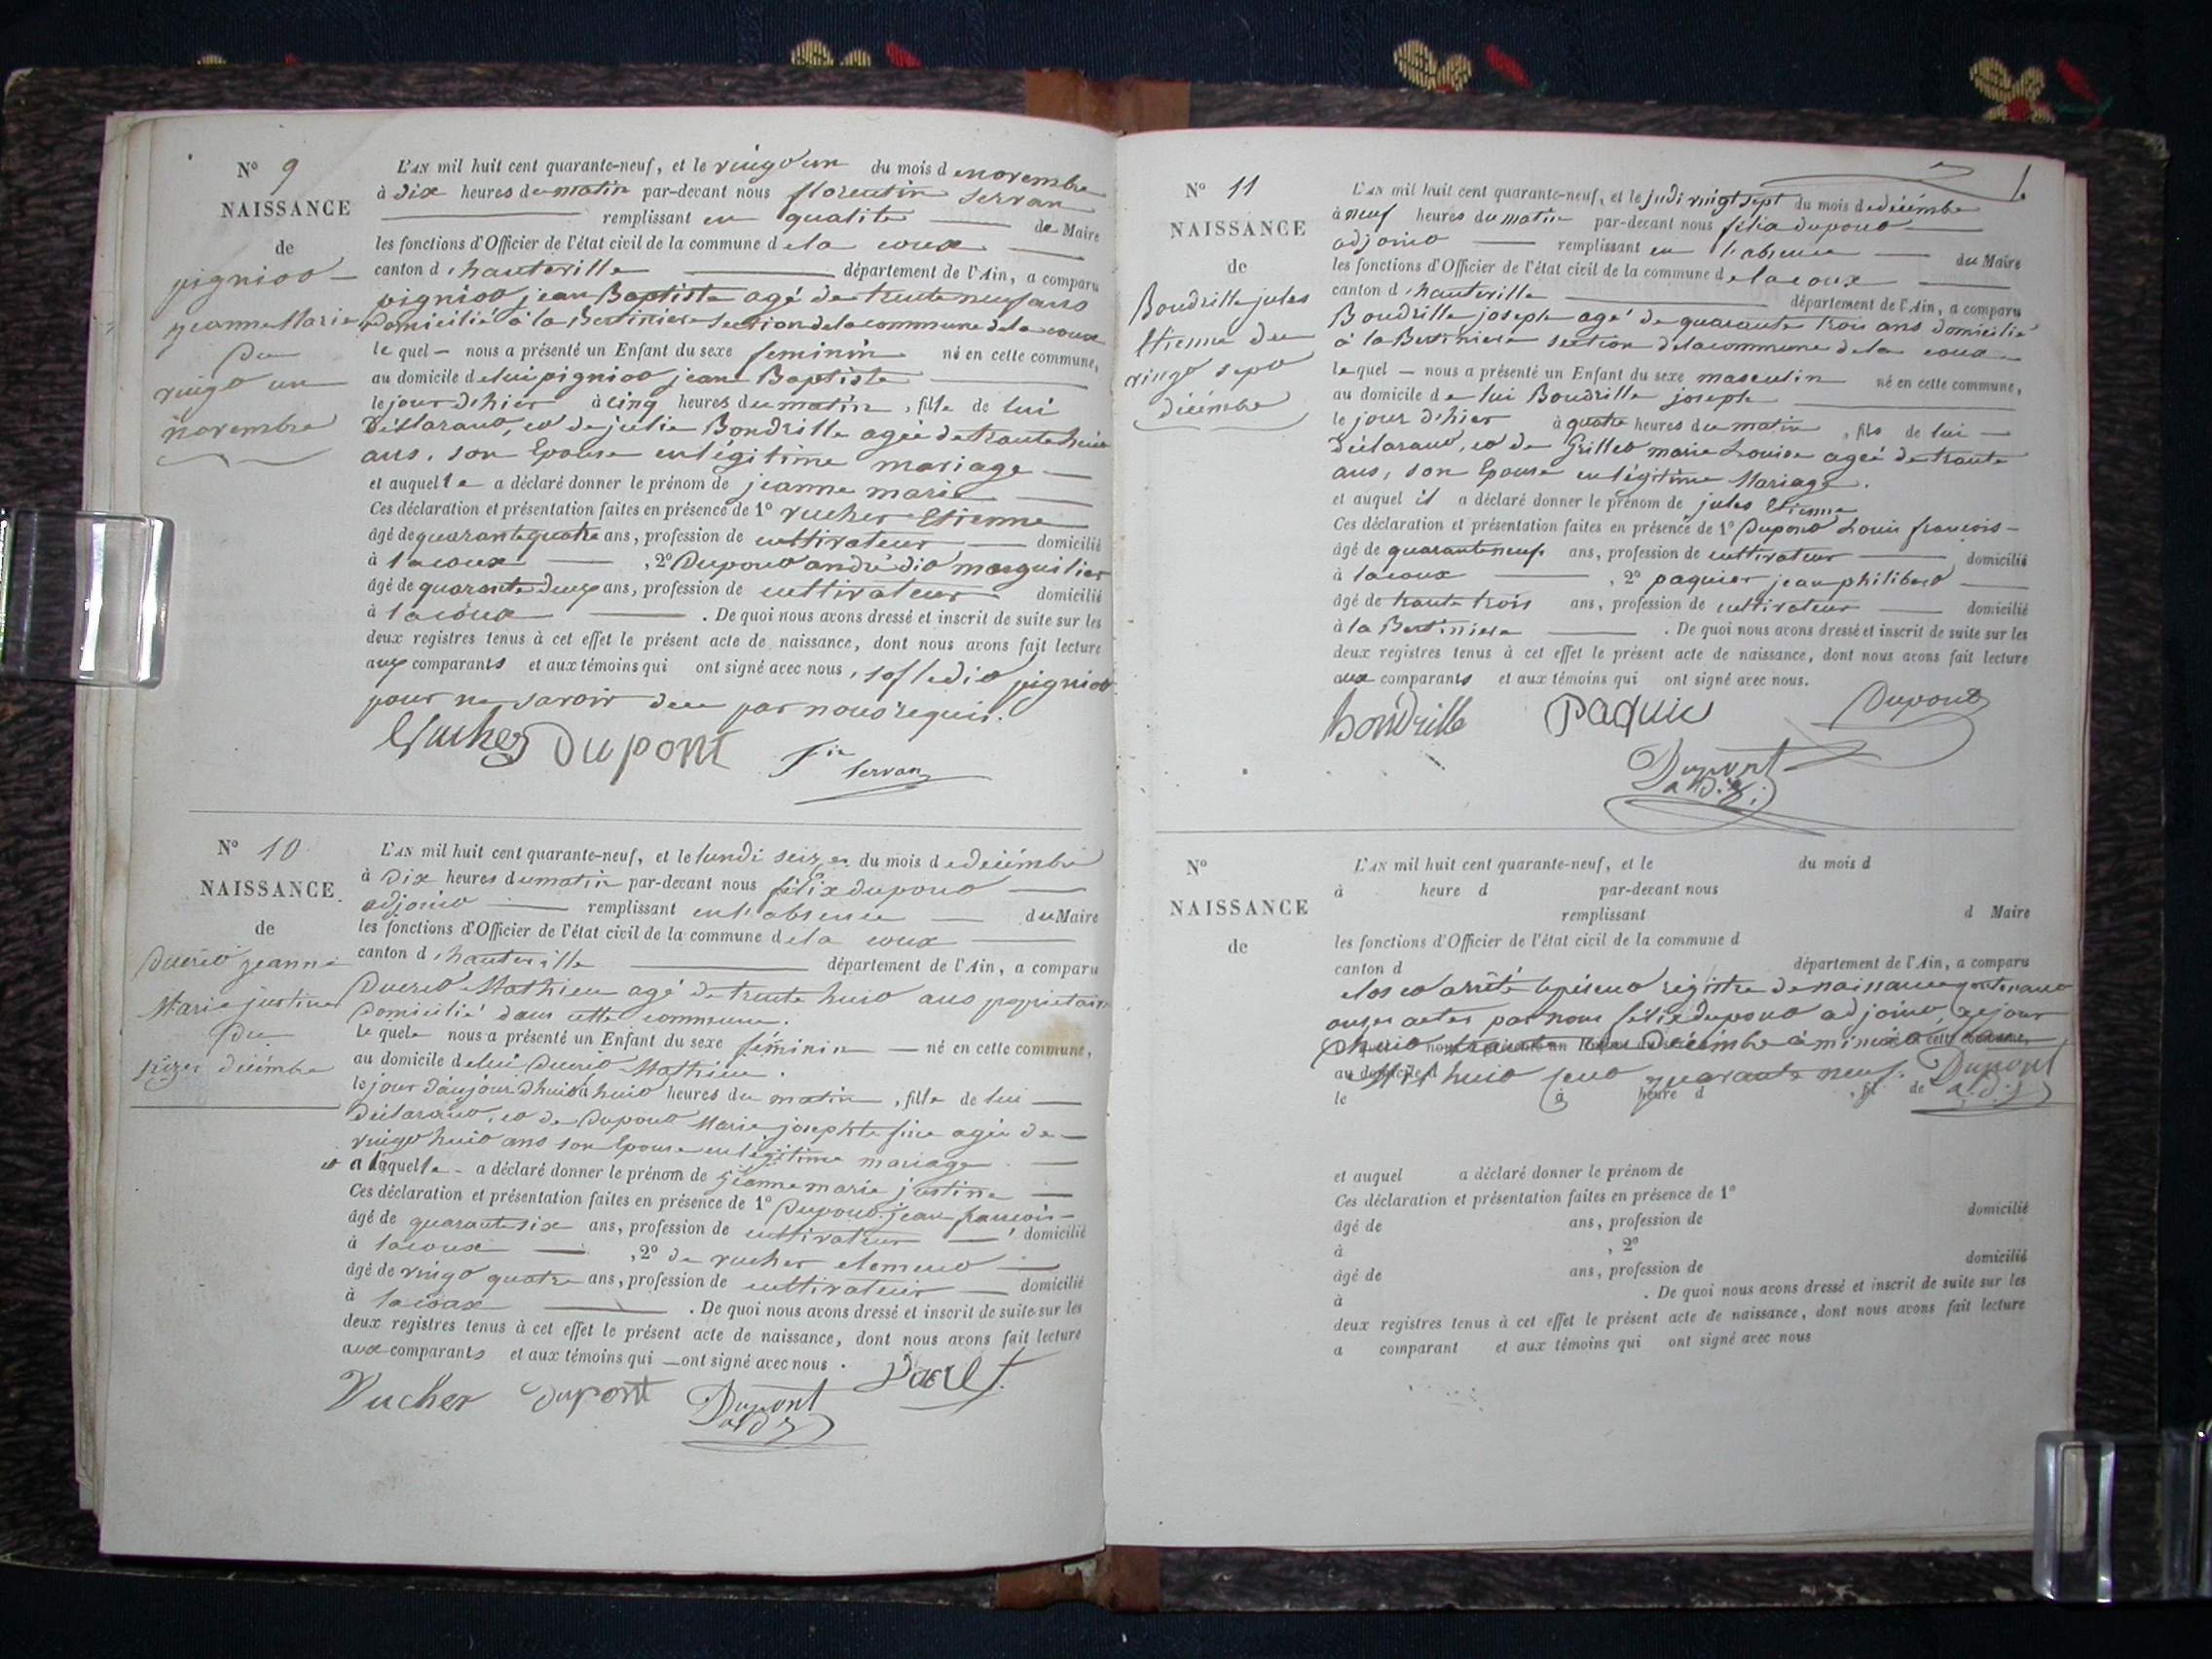 N° 9
NAISSANCE
de
pigniod
jeanne Marie
Du
vingt un
novembre
L'AN mil huit cent quarante-neuf, et le vingt un du mois d e novembre
à Dix heures du matin par-devant nous florentin Servan
remplissant en qualité de Maire
les fonctions d'Officier de l'état civil de la commune d e la coux
canton d'hauteville département de l'Ain, a comparu
pigniod jean Baptiste agé de trente neuf ans
Domicilié à la Bertinière section de la commune de la coux
le quel nous a présenté un Enfant du sexe féminin né en cette commune,
au domicile de lui pigniod jean Baptiste
le jour d'hier à cinq heures du matin, fille de lui
Déclarant, et de julie Bondrille agée de trente huit
ans, son Epouse en légitime mariage
et auquelle a déclaré donner le prénom de jeanne marie
Ces déclaration et présentation faites en présence de 1° vucher Etienne
âgé de quarante quatre ans, profession de cultivateur domicilié
à lacoux , 2° Dupont andré dit marguilier
âgé de quarante deux ans, profession de cultivateur domicilié
à lacoux . De quoi nous avons dressé et inscrit de suite sur les
deux registres tenus à cet effet le présent acte de naissance, dont nous avons fait lecture
aux comparants et aux témoins qui ont signé avec nous, pigniod
pour ne savoir De par nous requis.
Vucher Dupont Servan
N° 10
NAISSANCE
de
Ducret jeanne
Marie justine
Du
seize décembre
L'AN mil huit cent quarante-neuf, et le lundi seize du mois d e décembre
à Dix heures du matin par-devant nous félix dupont
adjoint remplissant en l'absence du Maire
les fonctions d'Officier de l'état civil de la commune d e la coux
canton d'hauteville département de l'Ain, a comparu
Ducret Mathieu agé de trente huit ans propriétaire
Domicilié dans cette commune.
le quel nous a présenté un Enfant du sexe féminin né en cette commune,
au domicile de lui Ducret Mathieu.
le jour d'aujourd'huit à huit heures du matin, fille de lui
Déclarant, et de Dupont Marie josephte agée de
vingt huit ans son Epouse en légitime mariage.
et a laquelle a déclaré donner le prénom de jeanne marie justine
Ces déclaration et présentation faites en présence de 1° Dupont jean françois
âgé de quarante six ans, profession de cultivateur domicilié
à lacoux , 2° de vucher clement
âgé de vingt quatre ans, profession de cultivateur domicilié
à lacoux . De quoi nous avons dressé et inscrit de suite sur les
deux registres tenus à cet effet le présent acte de naissance, dont nous avons fait lecture
aux comparants et aux témoins qui ont signé avec nous.
Vucher Dupont Dupont adj
N° 11
NAISSANCE
de
Bondrille jules
Etienne du
vingt sept
décembre
L'AN mil huit cent quarante-neuf, et le jeudi vingt sept du mois de décembre
à neuf heures du matin par-devant nous félix dupont
adjoint remplissant en l'absence du Maire
les fonctions d'Officier de l'état civil de la commune d e lacoux
canton d'hauteville département de l'Ain, a comparu
Bondrille joseph agé de quarante trois ans domicilié
à la Bertinière section de la commune de la coux
le quel nous a présenté un Enfant du sexe masculin né en cette commune,
au domicile de lui Bondrille joseph
le jour d'hier à quatre heures du matin, fils de lui
Déclarant, et de Grillet marie Louise agée de trente
ans, son Epouse en légitime Mariage.
et auquel il a déclaré donner le prénom de jules Etienne
Ces déclaration et présentation faites en présence de 1° Dupont Louis françois
âgé de quarante neuf ans, profession de cultivateur domicilié
à lacoux , 2° paquier jean philibert
âgé de trente trois ans, profession de cultivateur domicilié
à la Bertinière . De quoi nous avons dressé et inscrit de suite sur les
deux registres tenus à cet effet le présent acte de naissance, dont nous avons fait lecture
aux comparants et aux témoins qui ont signé avec nous.
Bondrille Paquie Dupont
Dupont adj
N°
NAISSANCE
de
L'AN mil huit cent quarante-neuf, et le du mois d
à heure d par-devant nous
remplissant d Maire
les fonctions d'Officier de l'état civil de la commune d
canton d département de l'Ain, a comparu
clos et arrêté le présent registre de naissance contenant
onze actes par nous félix dupont adjoint, ce jour
Dhuit trente un Décembre à minuit
Mil huit cent quarante neuf. Dupont
au domicile d adj
le à heure d , fil de
et auquel a déclaré donner le prénom de
Ces déclaration et présentation faites en présence de 1°
âgé de ans, profession de domicilié
à , 2°
âgé de ans, profession de domicilié
à . De quoi nous avons dressé et inscrit de suite sur les
deux registres tenus à cet effet le présent acte de naissance, dont nous avons fait lecture
a comparant et aux témoins qui ont signé avec nous